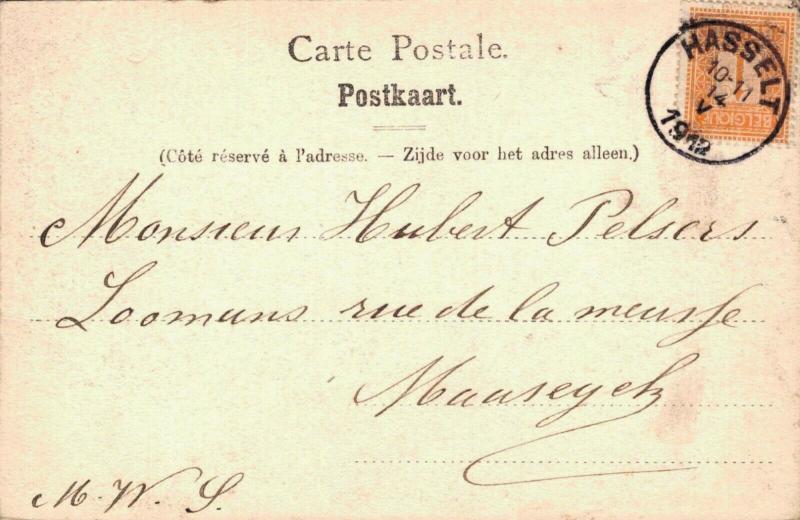 Carte Postale.
Postkaart.
(Côté réservé à l'adresse. — Zijde voor het adres alleen.)
HASSELT
10-11
14
V
1912
1
BELGIQUE
Monsieur Hubert Pelsers
Loomans rue de la meusse
Maaseyck
M. W. S.